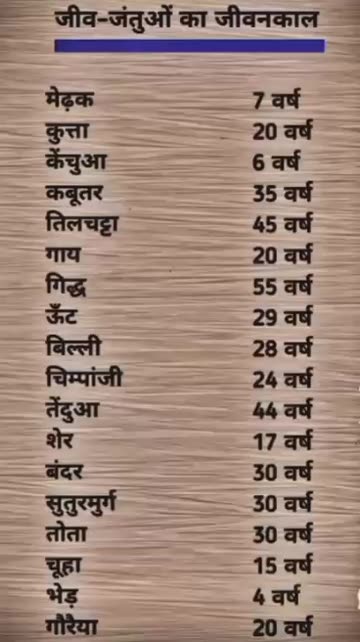 जीव-जंतुओं का जीवनकाल
मेढ़क 7 वर्ष
कुत्ता 20 वर्ष
केंचुआ 6 वर्ष
कबूतर 35 वर्ष
तिलचट्टा 45 वर्ष
गाय 20 वर्ष
गिद्ध 55 वर्ष
ऊँट 29 वर्ष
बिल्ली 28 वर्ष
चिम्पांजी 24 वर्ष
तेंदुआ 44 वर्ष
शेर 17 वर्ष
बंदर 30 वर्ष
सुतुरमुर्ग 30 वर्ष
तोता 30 वर्ष
चूहा 15 वर्ष
भेड़ 4 वर्ष
गौरैया 20 वर्ष